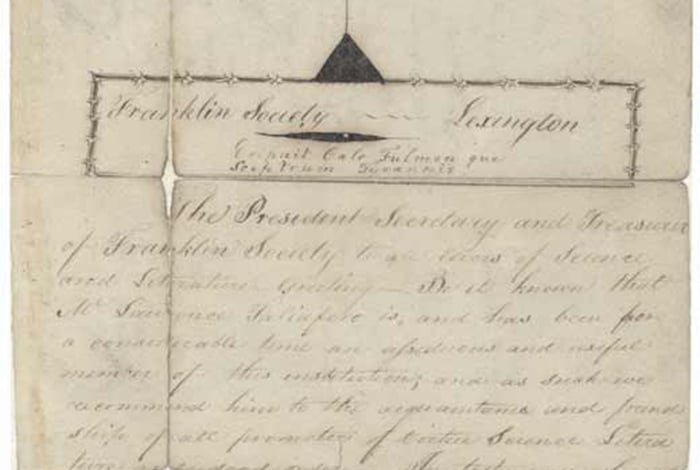 Franklin Society Lexington
Eripuit Calo Fulmen que
Sceptrum Tyrannis
The President Secretary and Treasurer
of Franklin Society to all lovers of Science
and Literature Greeting Be it known that
Mr Lawrence Taliafero is, and has been for
a considerable time an assiduous and useful
member of this institution; and as such we
recommend him to the acquaintance and friend
ship of all promoters of virtue Science Litera
ture and good order